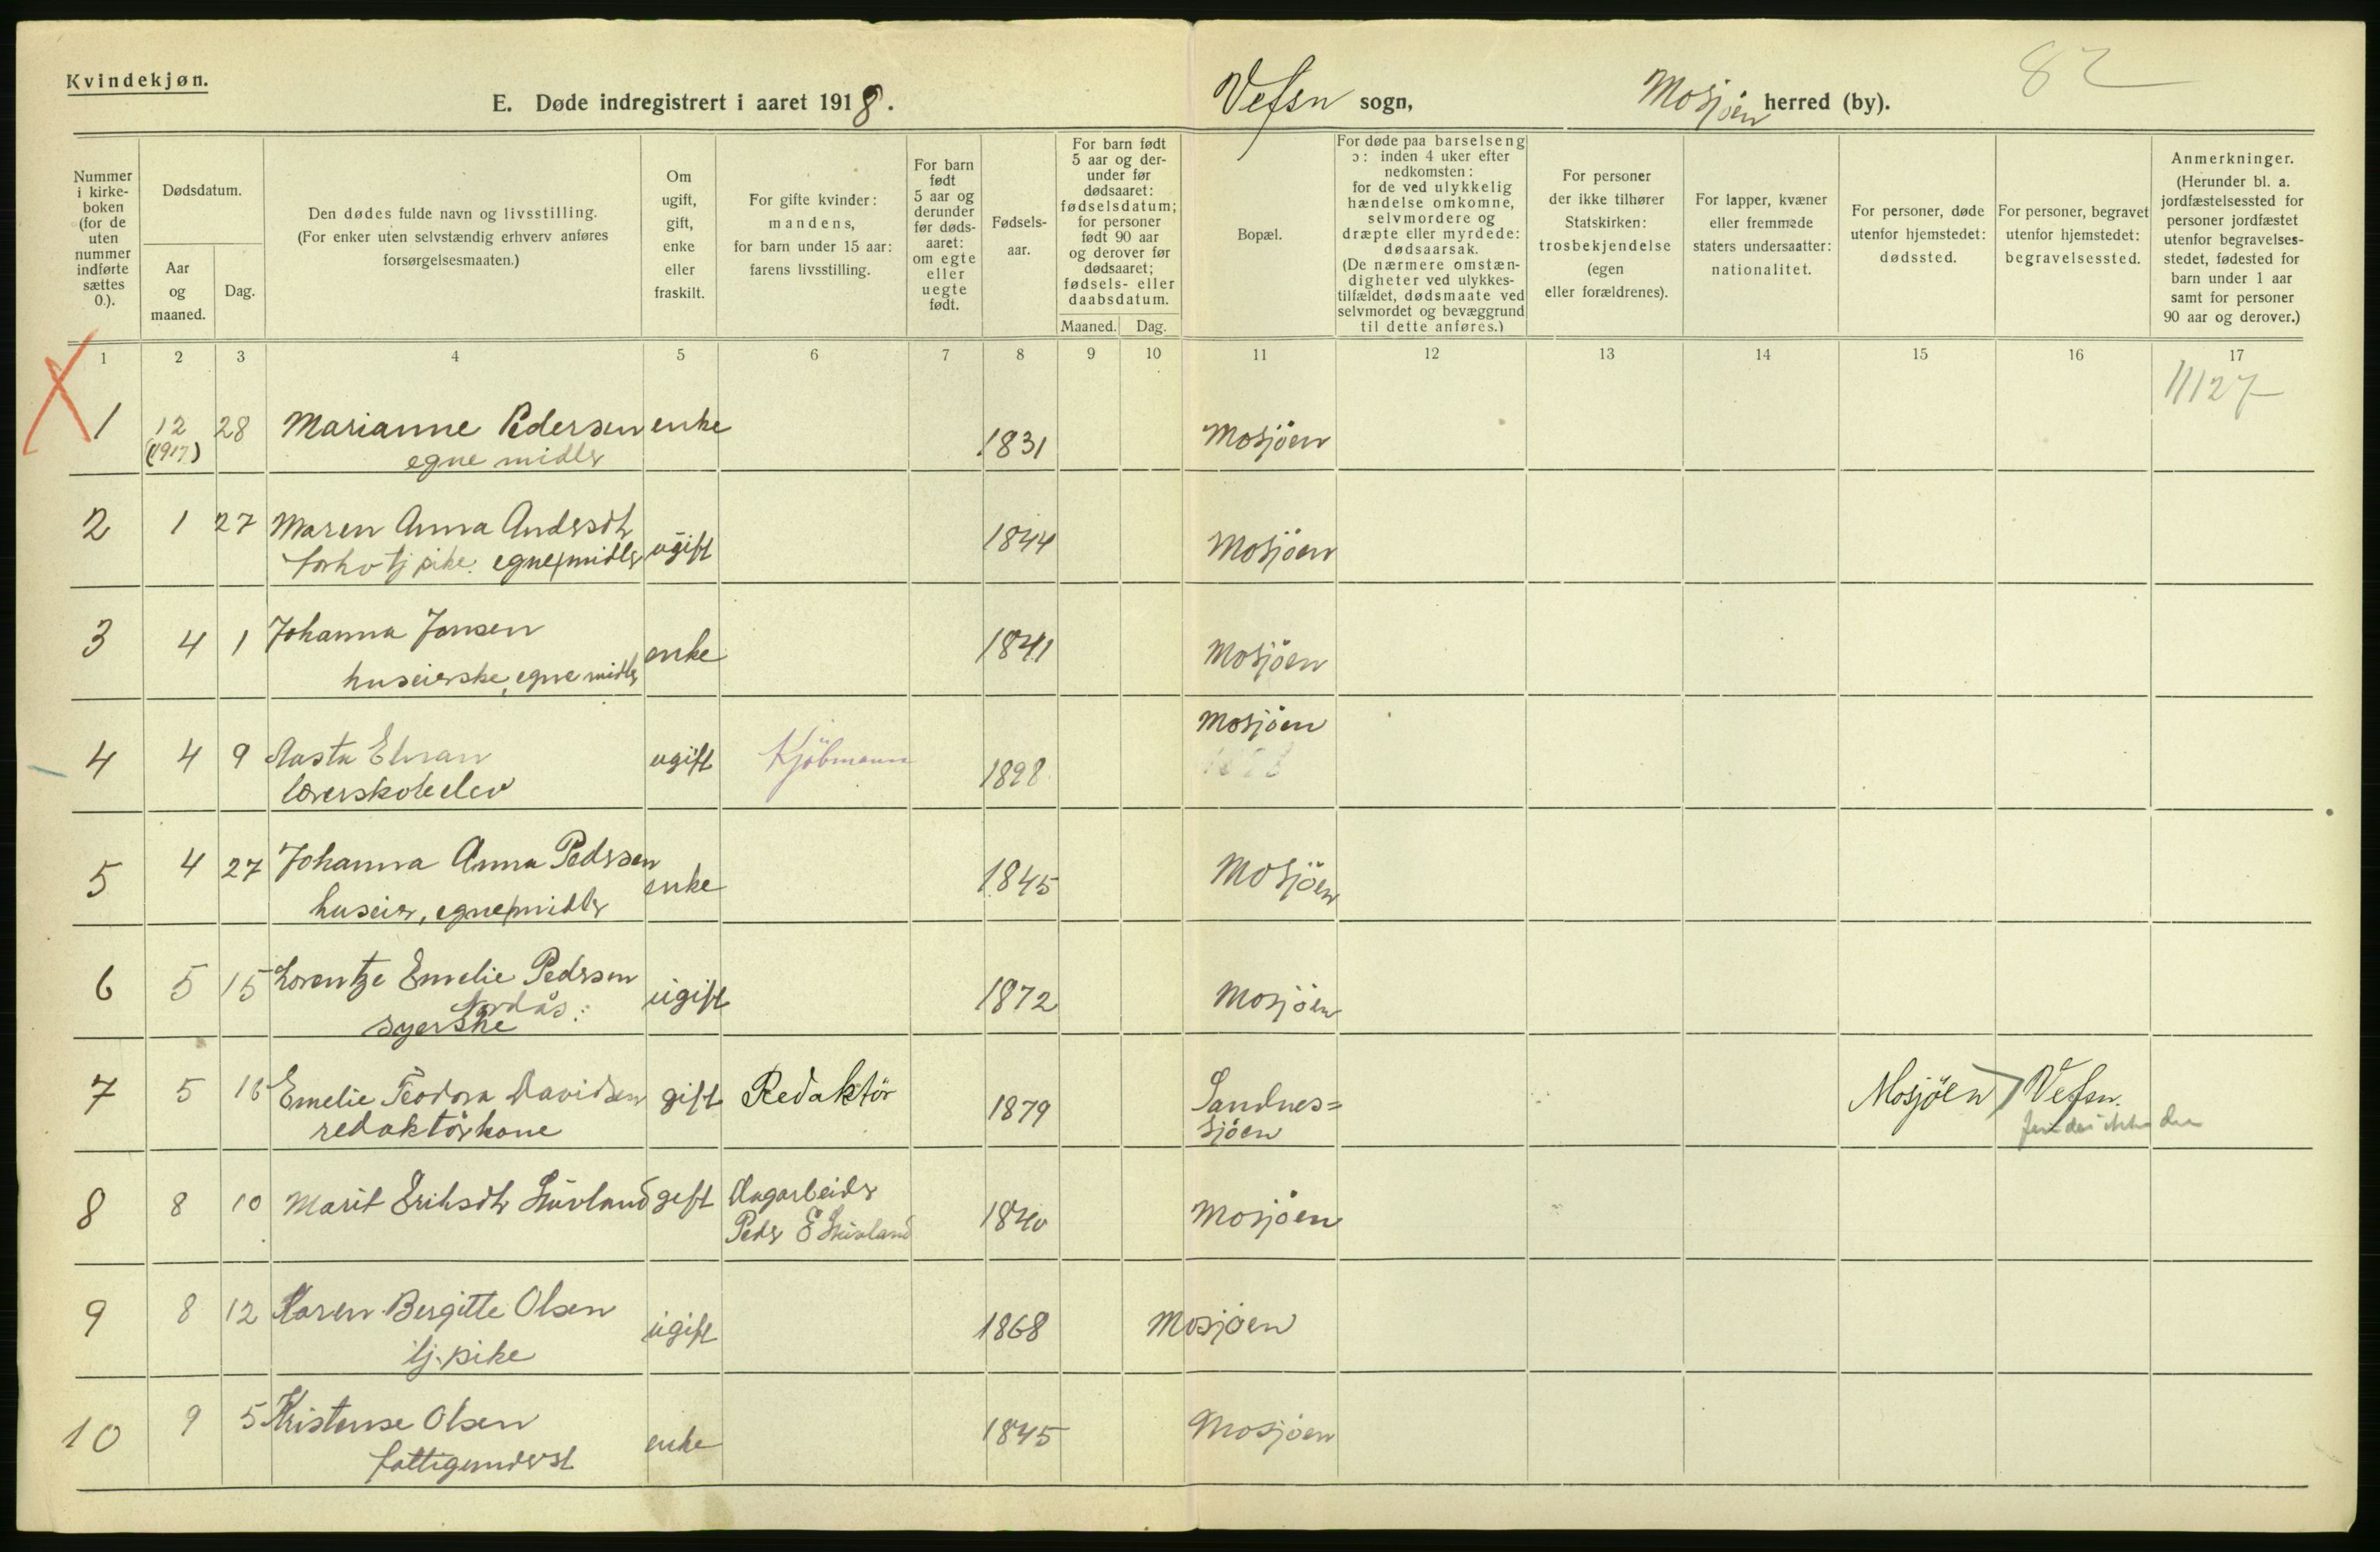 Kvindekjøn.
E. Døde indregistrert i aaret 1918.
Vefsn sogn,
Mosjøen herred (by).
82
Nummer
i kirke-
boken
(for de
uten
nummer
indførte
sættes
0.).
Dødsdatum.
Aar
og
maaned.
Dag.
Den dødes fulde navn og livsstilling.
(For enker uten selvstændig erhverv anføres
forsørgelsesmaaten.)
Om
ugift,
gift,
enke
eller
fraskilt.
For gifte kvinder:
mandens,
for barn under 15 aar:
farens livsstilling.
For barn
født
5 aar og
derunder
før døds-
aaret:
om egte
eller
uegte
født.
Fødsels-
aar.
For barn født
5 aar og der-
under før
dødsaaret:
fødselsdatum;
for personer
født 90 aar
og derover før
dødsaaret;
fødsels- eller
daabsdatum.
Maaned. Dag.
Bopæl.
For døde paa barselseng
ɔ: inden 4 uker efter
nedkomsten:
for de ved ulykkelig
hændelse omkomne,
selvmordere og
dræpte eller myrdede:
dødsaarsak.
(De nærmere omstæn-
digheter ved ulykkes-
tilfældet, dødsmaate ved
selvmordet og bevæggrund
til dette anføres.)
For personer
der ikke tilhører
Statskirken:
trosbekjendelse
(egen
eller forældrenes).
For lapper, kvæner
eller fremmede
staters undersaatter:
nationalitet.
For personer, døde
utenfor hjemstedet:
dødssted.
For personer, begravet
utenfor hjemstedet:
begravelsessted.
Anmerkninger.
(Herunder bl. a.
jordfæstelsessted for
personer jordfæstet
utenfor begravelses-
stedet, fødested for
barn under 1 aar
samt for personer
90 aar og derover.)
1 2 3 4 5 6 7 8 9 10 11 12 13 14 15 16 17
11127
1 12 28 Marianne Pedersen enke 1831 Mosjöen
(1917) egne midler
2 1 27 Maren Anna Andersdtr ugift 1844 Mosjöen
forhv tj pike. egne midler
3 4 1 Johanna Jansen enke 1841 Mosjöen
huseierske, egne midler
4 4 9 Aasta Elvran ugift Kjöbmann 1898 Mosjöen
lærerskoleelev
5 4 27 Johanna Anna Pedersen enke 1845 Mosjöen
huseier, egne midler
6 5 15 Lorentze Emelie Pedersen ugift 1872 Mosjöen
Nordås:
syerske
7 5 16 Emelie Teodora Davidsen gift Redaktör 1879 Sandnes= Mosjöen Vefsn.
redaktörkone sjöen
8 8 10 Marit Eriksdtr gift Dagarbeider 1840 Mosjöen
Peder E
9 8 12 Karen Bergitte Olsen ugift 1868 Mosjöen
tj. pike
10 9 5 Kristense Olsen enke 1845 Mosjöen
fattigunderst